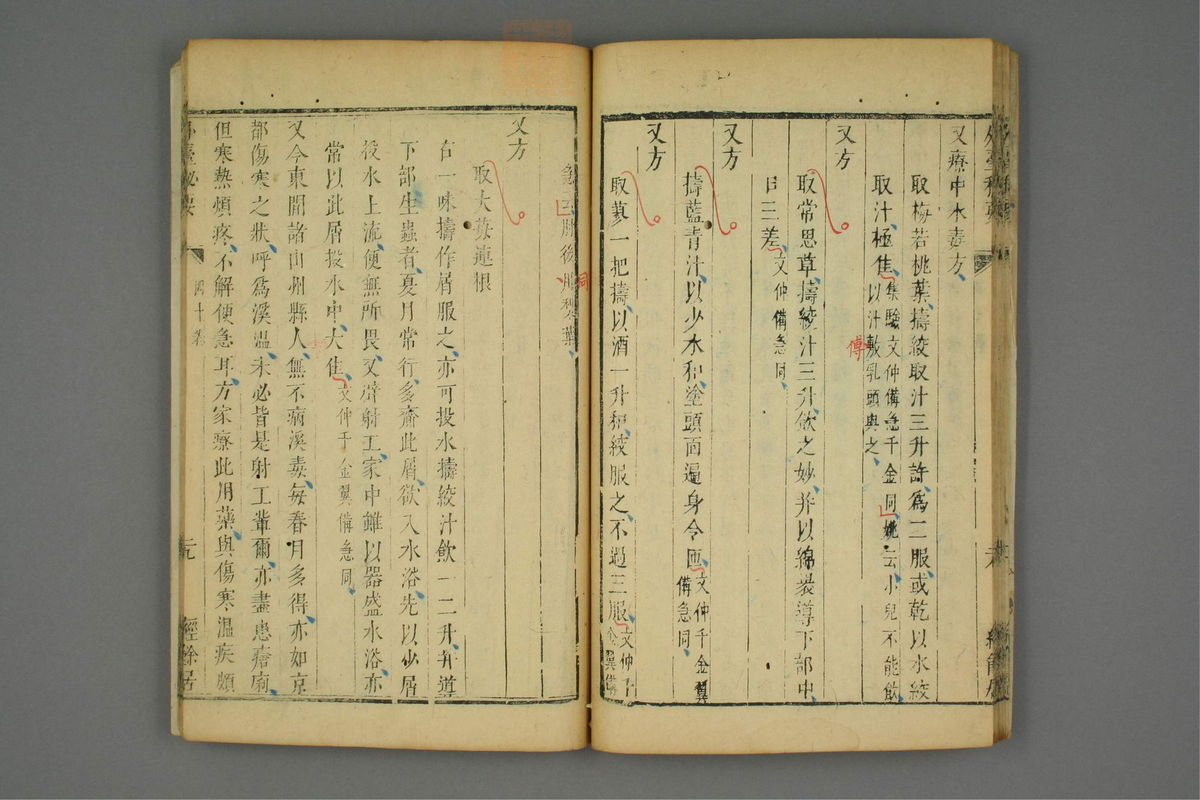 又療中水毒方
取梅若桃葉擣絞取汁三升許爲二服或乾以水絞
取汁極佳集驗文仲備急千金同姚云小兒不能飲以汁敷乳頭與之
傅
又方
取常思草擣絞汁三升飲之妙并以綿裹導下部中
日三差文仲備急同
又方
擣藍青汁以少水和塗頭面遍身令匝文仲千金翼備急同
又方
取蓼一把擣以酒一升和絞服之不過三服文仲千金翼備
急云肘後用梨葉
同
又方
取大莓連根
右一味擣作屑服之亦可投水擣絞汁飲一二升并導
下部生蟲者夏月常行多齎此屑欲入水浴先以少屑
投水上流便無所畏又辟射工家中雖以器盛水浴亦
常以此屑投水中大佳文仲千金翼備急同
又今東間諸山州縣人無不病溪毒每春月多得亦如京
都傷寒之狀呼爲溪溫未必皆是射工輩爾亦盡患瘡痢
但寒熱煩疼不解便急耳方家療此用藥與傷寒溫疾頗
外臺祕要
四十卷
經餘居